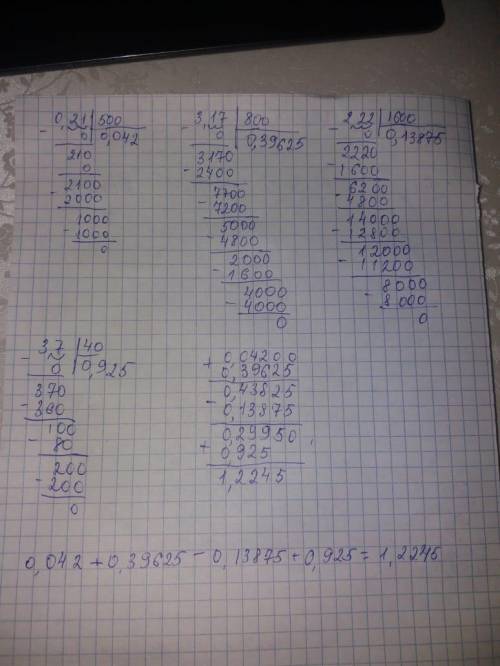 0,21 | 500
- 0 | 0,042
210
0
- 2100
2000
- 1000
1000
0
3,17 | 800
- 0 | 0,39625
3170
- 2400
7700
- 7200
5000
- 4800
2000
- 1600
4000
- 4000
0
2,22 | 1600
- 0 | 0,13875
2220
- 1600
6200
- 4800
14000
- 12800
12000
- 11200
8000
- 8000
0
3,7 | 40
- 0 | 0,925
370
- 360
100
- 80
200
- 200
0
+ 0,04200
0,39625
- 0,43825
0,13875
+ 0,29950
0,925
1,2245
0,042 + 0,39625 - 0,13875 + 0,925 = 1,2245